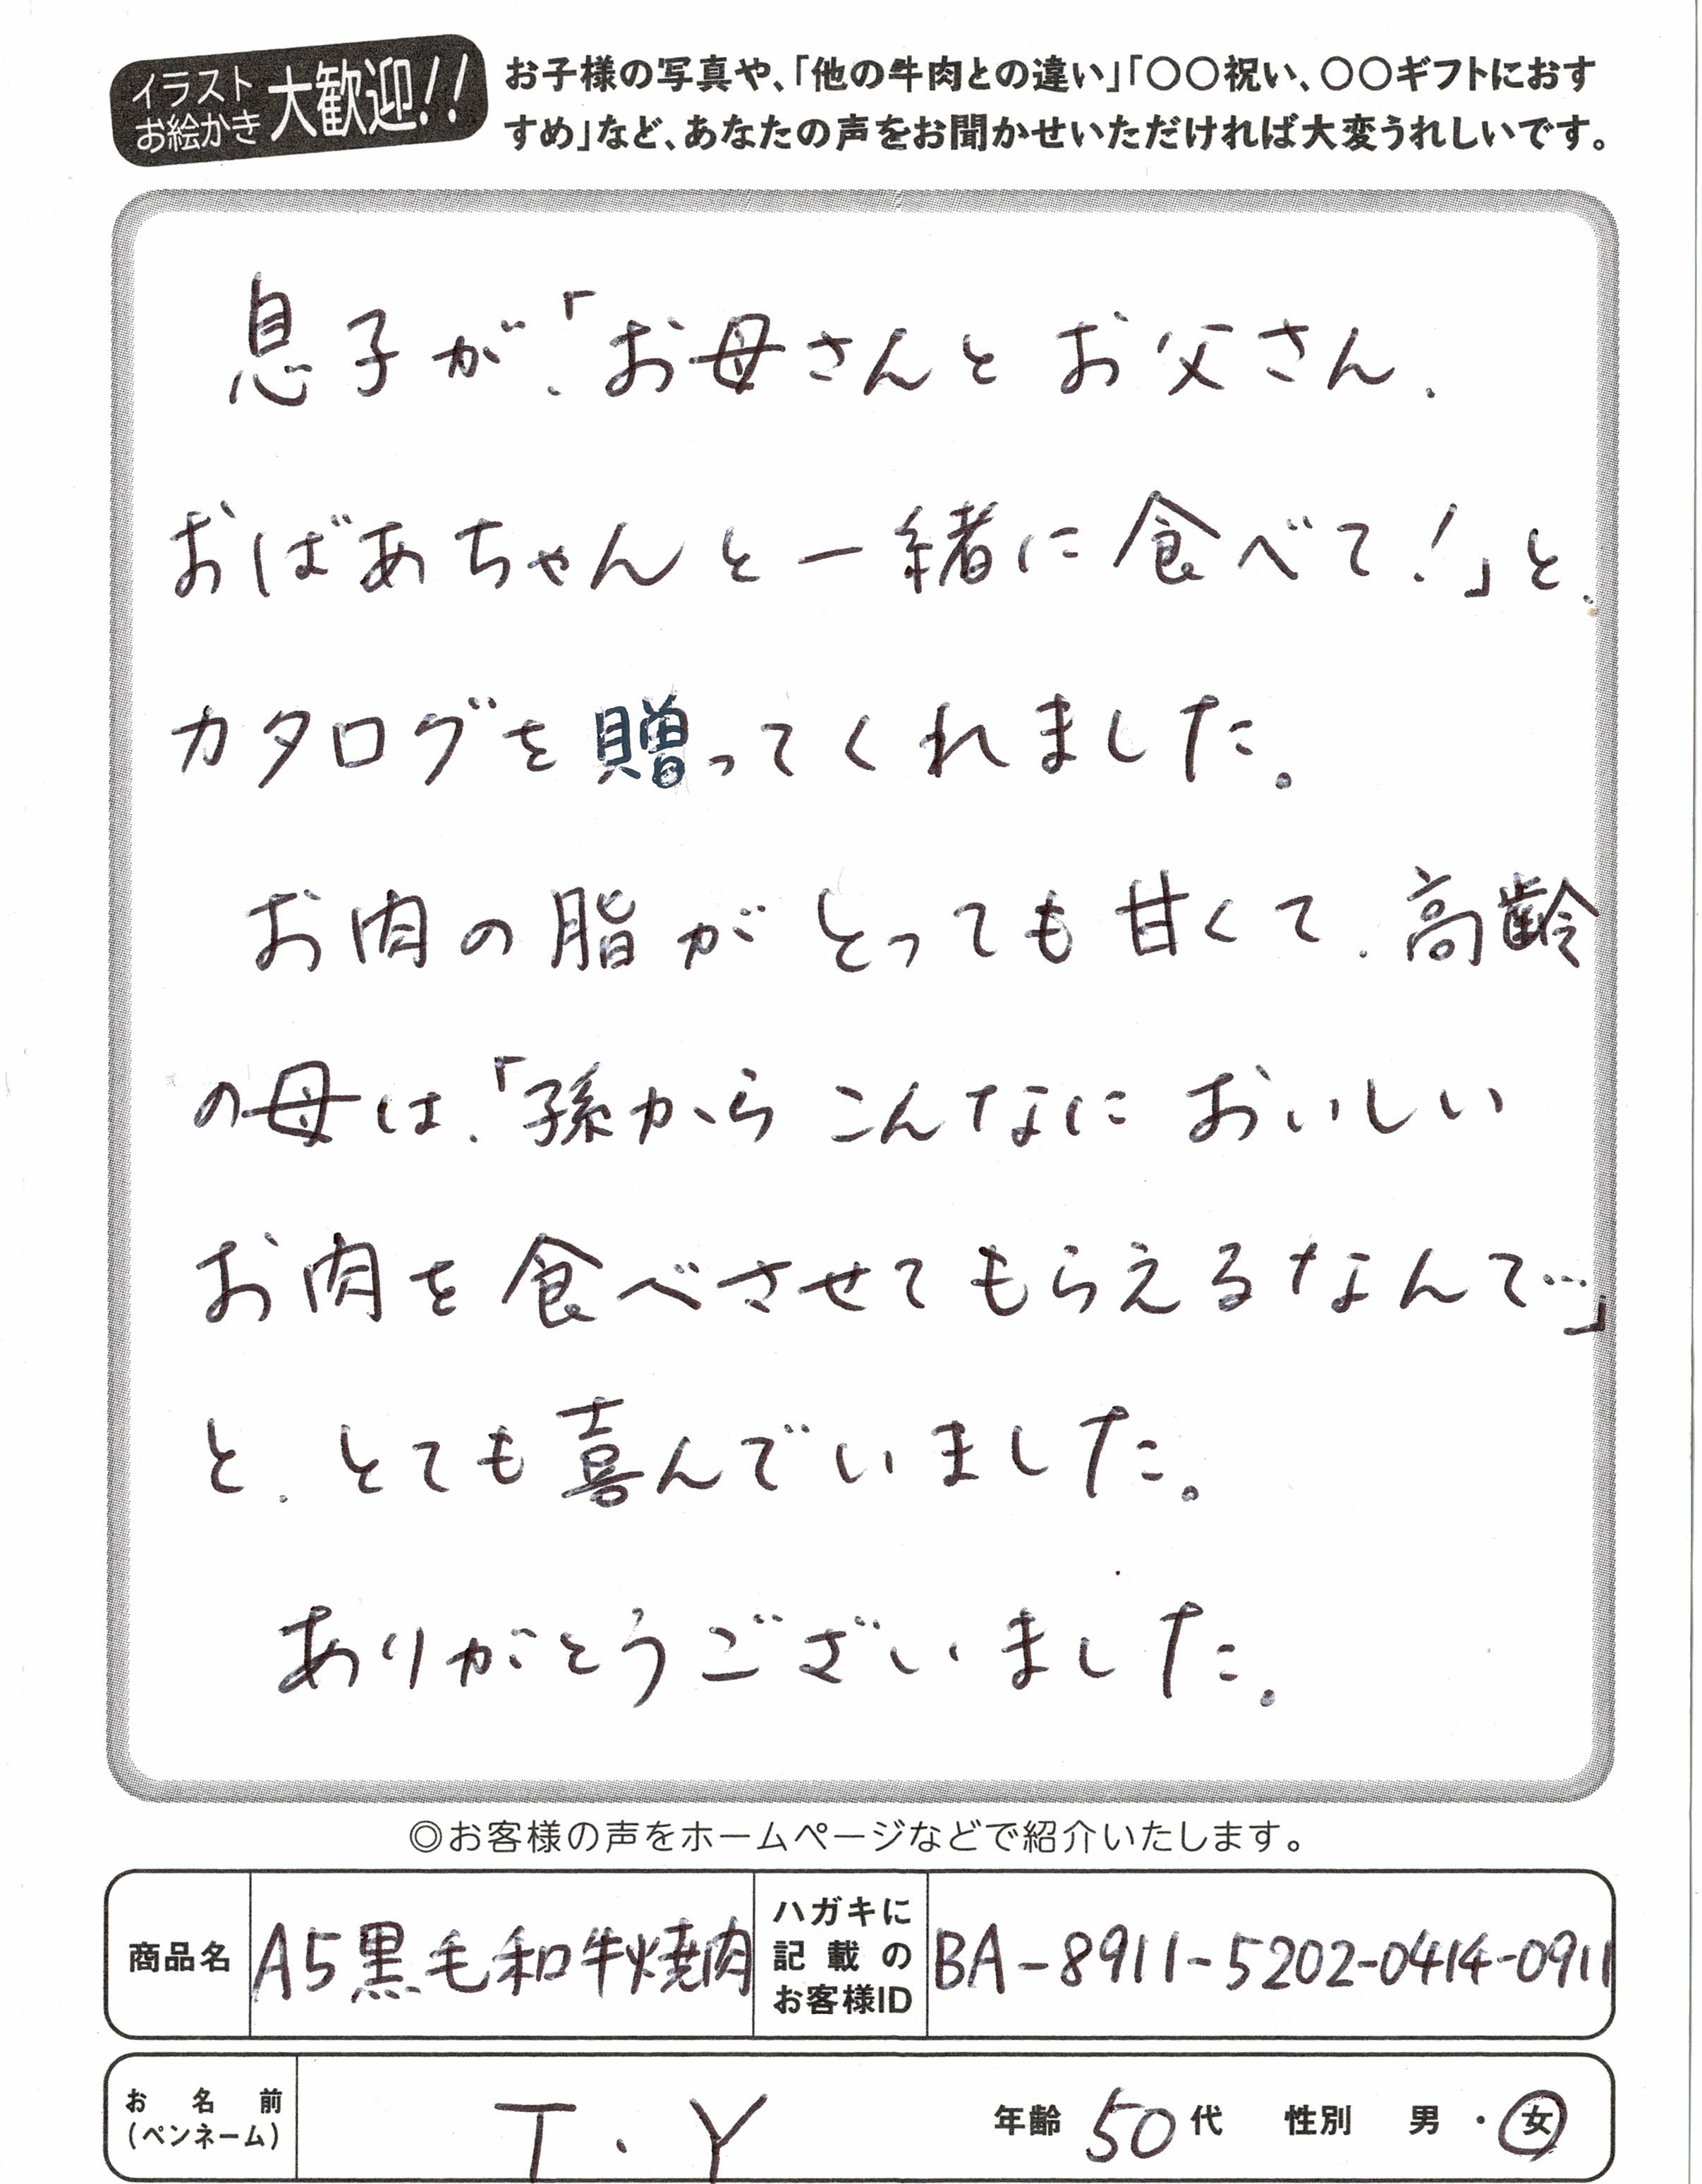 イラスト
お絵かき
大歓迎!!
お子様の写真や、「他の牛肉との違い」「〇〇祝い、〇〇ギフトにおす
すめ」など、あなたの声をお聞かせいただければ大変うれしいです。
息子が、「お母さんとお父さん、
おばあちゃんと一緒に食べて!」と、
カタログを贈ってくれました。
お肉の脂がとっても甘くて、高齢
の母は、「孫からこんなにおいしい
お肉を食べさせてもらえるなんて…」
と、とても喜んでいました。
ありがとうございました。
◎お客様の声をホームページなどで紹介いたします。
商品名 A5黒毛和牛焼肉
ハガキに
記載の
お客様ID
BA-8911-5202-0414-0911
お名前
(ペンネーム)
T.Y
年齢 50代 性別 男・女